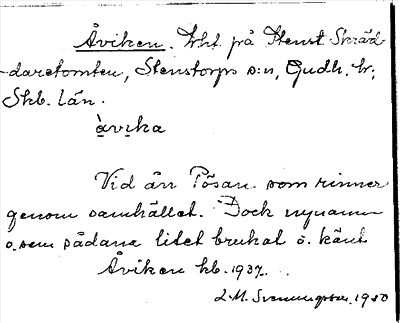 Åviken. Lht. på Stenst. Skräd-
daretomten, Stenstorps s:n, Gudh. hr;
Skb. län.
àvika
Vid ån Pösan som rinner
genom samhället. Dock nynamn
o. som sådana litet brukat o. känt
Åviken kb. 1937.
L.M. Svenungsson 1950